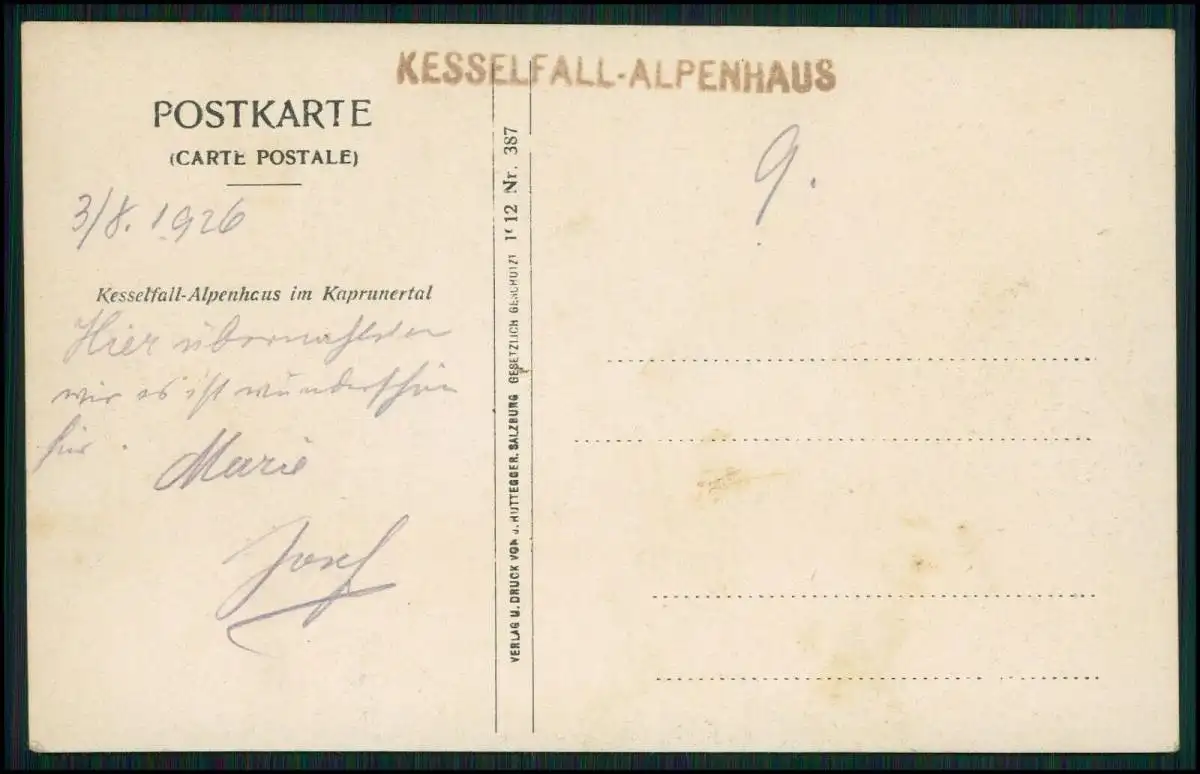 KESSELFALL-ALPENHAUS
POSTKARTE
(CARTE POSTALE)
3/8. 1926
Kesselfall-Alpenhaus im Kaprunertal
Hier
wir es ist wunderschön
hir.
Marie
Josef
VERLAG U. DRUCK VON J. HUTTEGGER, SALZBURG GESETZLICH GESCHÜTZT 1912 Nr. 387
9.